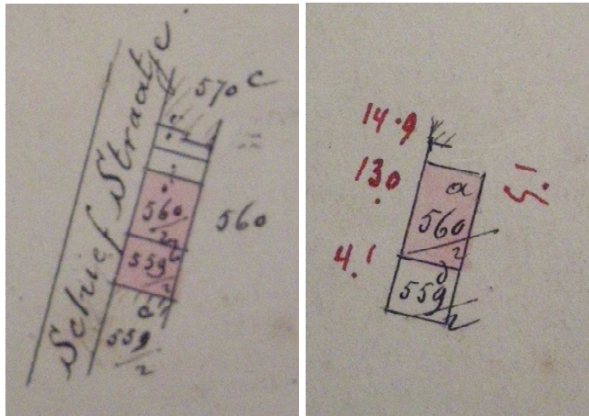 Schief Straatje.
570 C
560
560
2
559
2
559
2
14.9
130
4.1
5.1
a
560
2
559
2